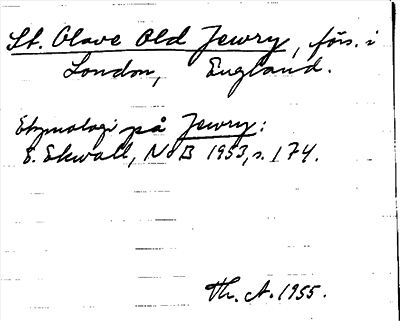 St. Olave Old Jewry, förs. i
London, England.
Etymologi på Jewry:
E. Ekwall, NoB 1953, s. 174.
Th. A. 1955.